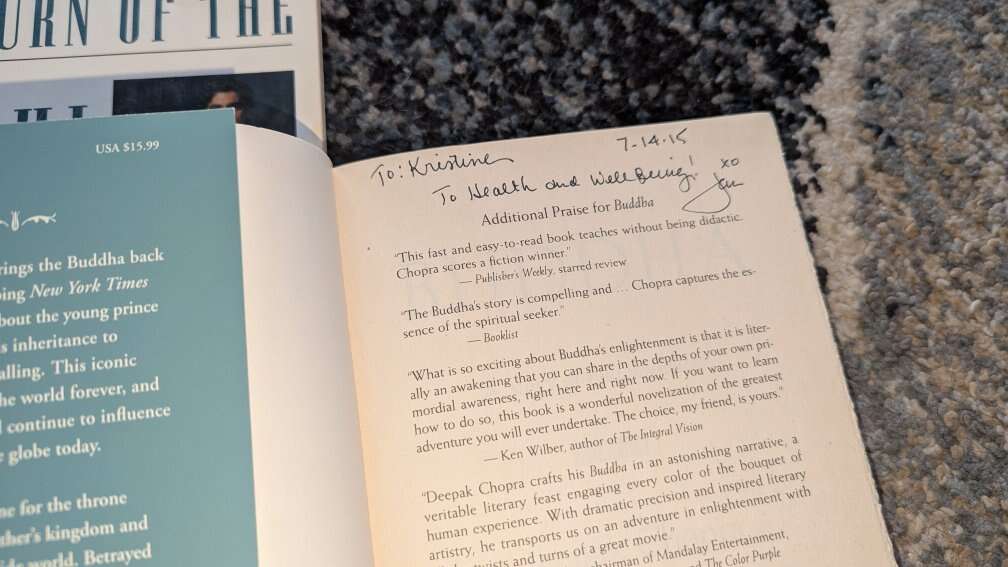 URN OF THE
USA $15.99
rings the Buddha back
ing New York Times
bout the young prince
s inheritance to
alling. This iconic
he world forever, and
continue to influence
globe today.
ne for the throne
ther's kingdom and
world. Betrayed
To: Kristine
7-14-15
To Health and Well Being!
xo
Jan
Additional Praise for Buddha
"This fast and easy-to-read book teaches without being didactic.
Chopra scores a fiction winner."
— Publisher's Weekly, starred review
"The Buddha's story is compelling and … Chopra captures the es-
sence of the spiritual seeker."
— Booklist
"What is so exciting about Buddha's enlightenment is that it is liter-
ally an awakening that you can share in the depths of your own pri-
mordial awareness, right here and right now. If you want to learn
how to do so, this book is a wonderful novelization of the greatest
adventure you will ever undertake. The choice, my friend, is yours."
— Ken Wilber, author of The Integral Vision
"Deepak Chopra crafts his Buddha in an astonishing narrative, a
veritable literary feast engaging every color of the bouquet of
human experience. With dramatic precision and inspired literary
artistry, he transports us on an adventure in enlightenment with
twists and turns of a great movie."
chairman of Mandalay Entertainment,
and The Color Purple